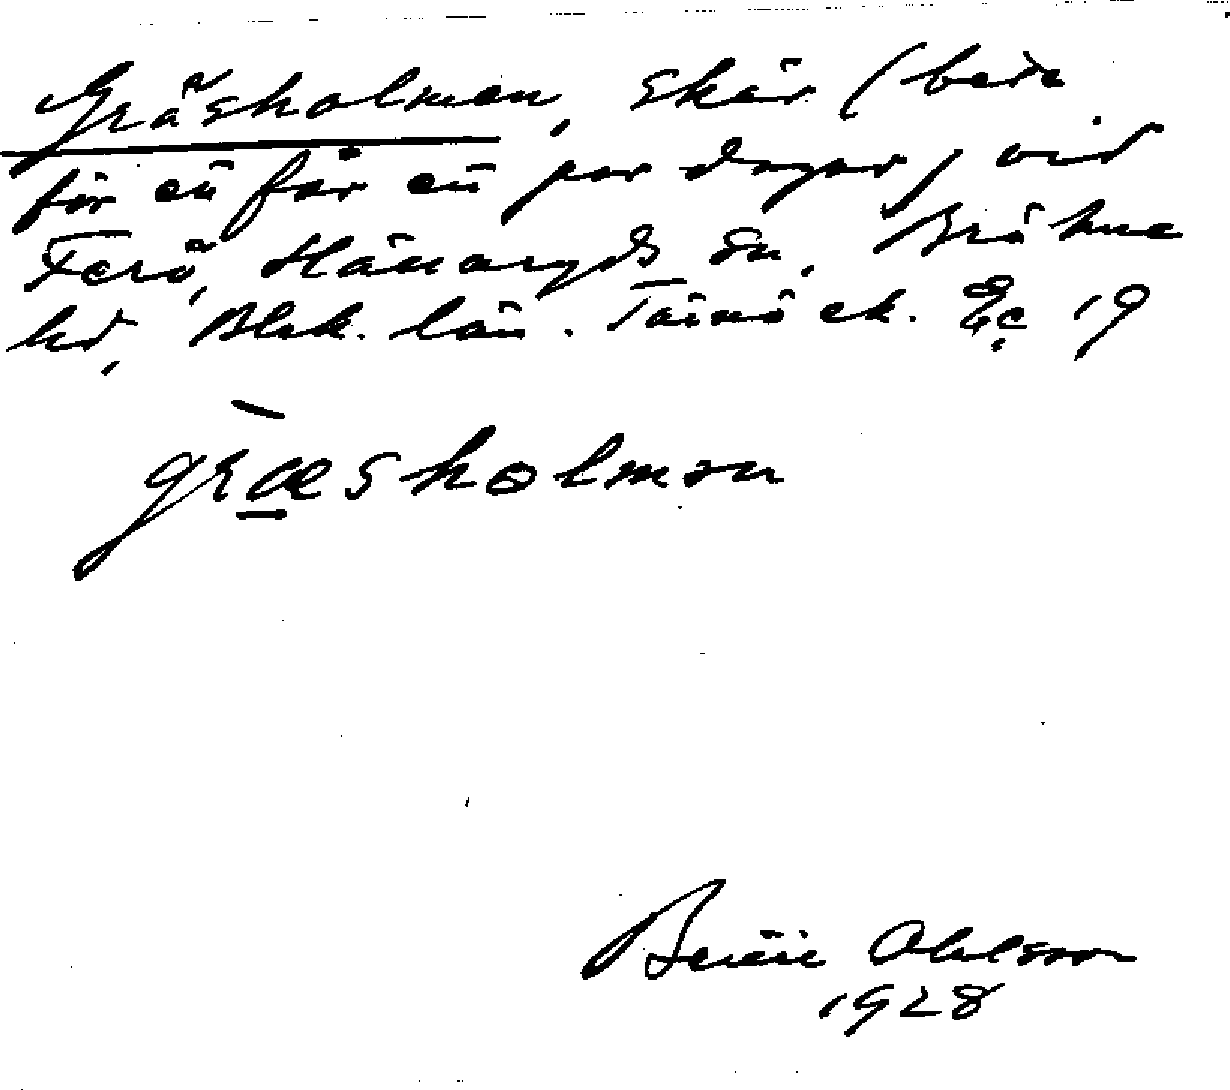 Gräsholmen, skär (bete
för ett får ett par dagar) vid
Terö, Hällaryds sn, Bräkne
hd, Blek. län. Tärnö ek. Ec 19
græsholmen
Bertil Ohlsson
1928